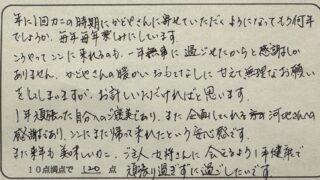 年に1回カニの時期にかどやさんに寄せていただくようになってもう何年
でしょうか。毎年毎年楽しみにしています。
こうやってここに来れるのも、一年無事に過ごせたからと感謝しか
ありません。かどやさんの暖かいおもてなしに甘えて無理なお願い
をしてしまいますが、お許しいただければと思います。
1年頑張った自分へのご褒美であり、また企画してくれる
感謝であり、ここにまた帰って来れたという安心感です。
また来年も美味しいカニ、ご主人、女将さんに会えるよう1年健康で
10点満点で 120 点 頑張り過ぎずに過ごしたいです。